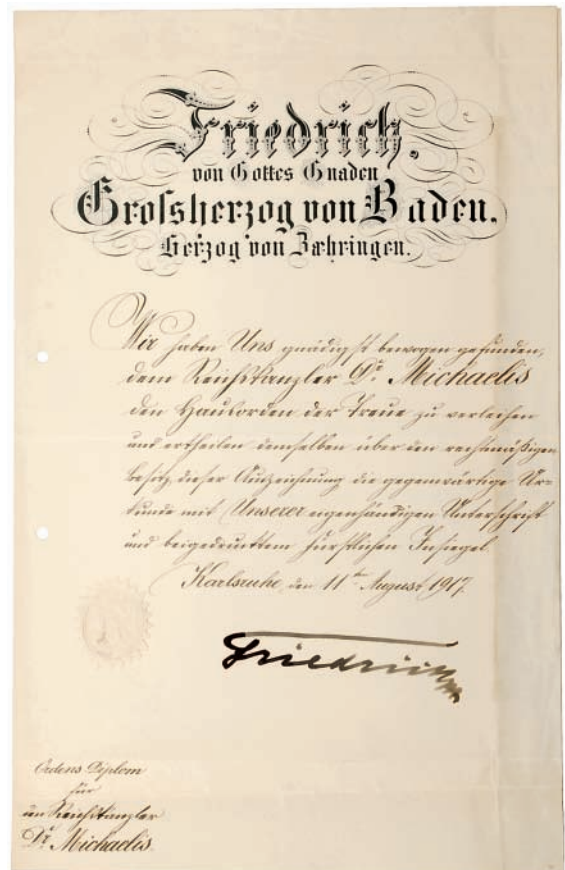 Friedrich,
von Gottes Gnaden
Grossherzog von Baden,
Herzog von Zæhringen.
Wir haben Uns gnädigst bewogen gefunden,
dem Reichskanzler Dr. Michaelis
den Hausorden der Treue zu verleihen
und ertheilen demselben über den rechtmäßigen
Besitz dieser Auszeichnung die gegenwärtige Ur-
kunde mit Unserer eigenhändigen Unterschrift
und beigedrucktem Fürstlichen Insiegel.
Karlsruhe, den 11ten August 1917.
Friedrich
Ordens Diplom
für
den Reichskanzler
Dr. Michaelis.